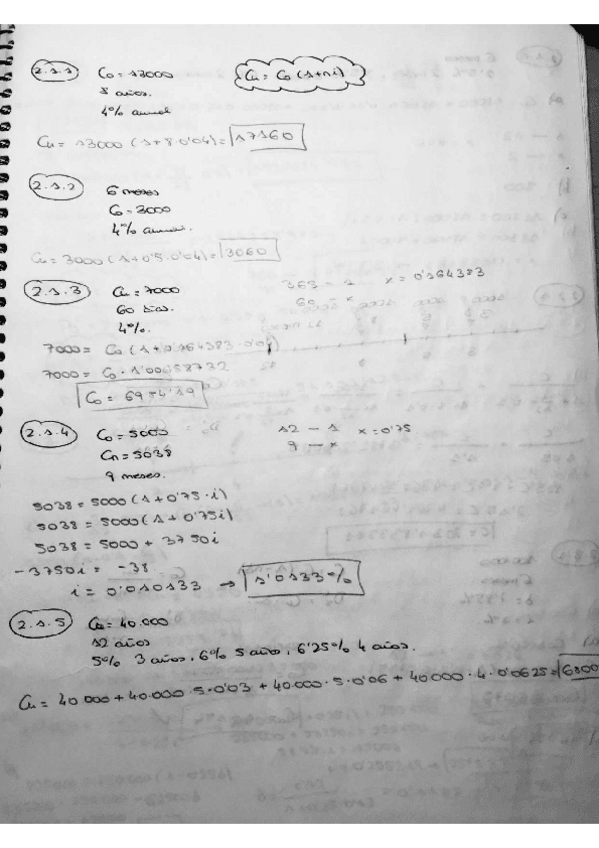 2.1.1 C₀ = 13000 Cn = C₀ (1+ni)
8 años.
4% anual
Cn = 13000 (1+8·0'04) = 17160
2.1.2 6 meses
C₀ = 3000
4% anual.
Cn = 3000 (1+0'5·0'04) = 3060
2.1.3 Cn = 7000 365 - 1 x = 0'164383
60 días. 60 - x
4%.
7000 = C₀ (1+0'164383·0'04)
7000 = C₀ · 1'00658732
C₀ = 6954'19
2.1.4 C₀ = 5000 12 - 1 x = 0'75
Cn = 5038 9 - x
9 meses.
5038 = 5000 (1+0'75·i)
5038 = 5000 (1+0'75i)
5038 = 5000 + 3750i
-3750i = -38
i = 0'010133 → 1'0133%
2.1.5 = 40.000
12 años
5% 3 años, 6% 5 años, 6'25% 4 años.
Cn = 40 000 + 40.000 · 5 · 0'03 + 40.000 · 5 · 0'06 + 40 000 · 4 · 0'0625 =